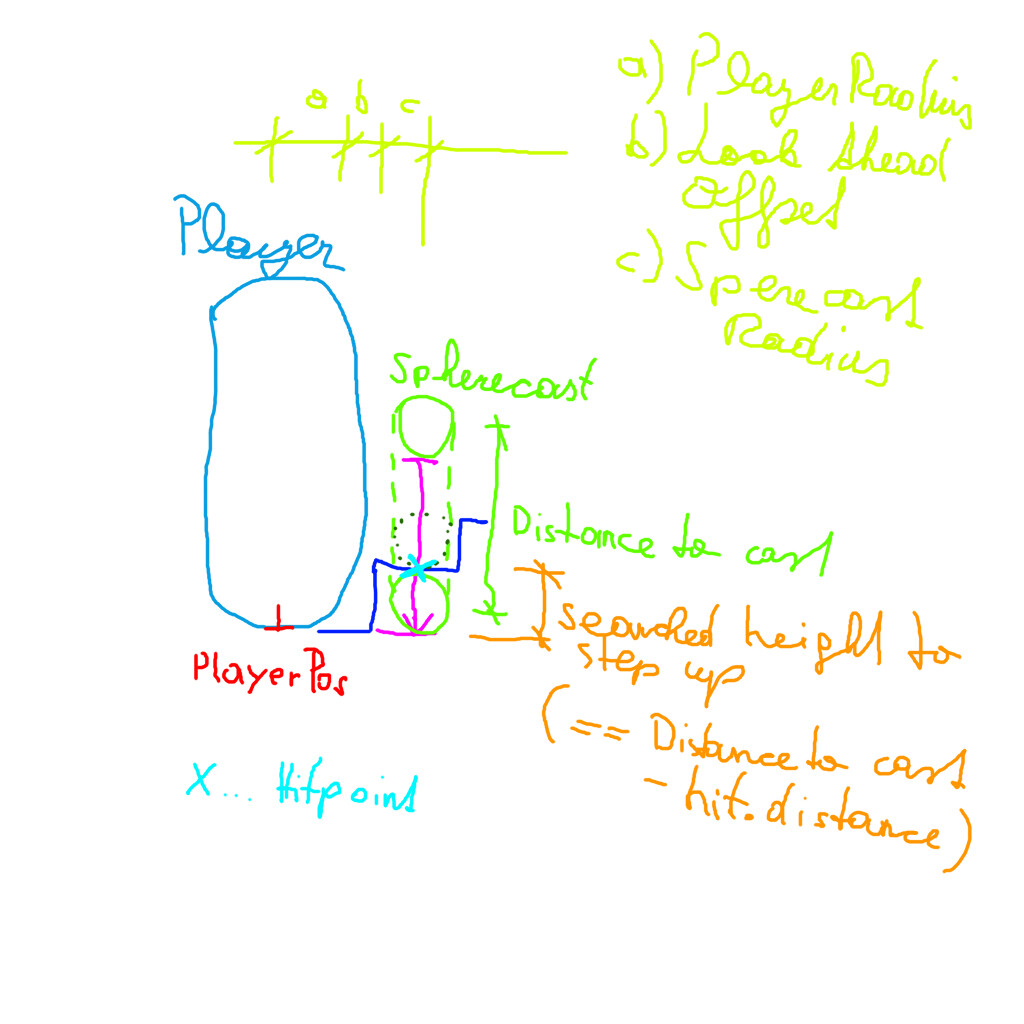 a b c
a) PlayerRadius
b) Look Ahead
Offset
c) Sperecast
Radius
Player
Spherecast
Distance to cast
searched height to
step up
(== Distance to cast
- hit.distance)
PlayerPos
X... Hitpoint